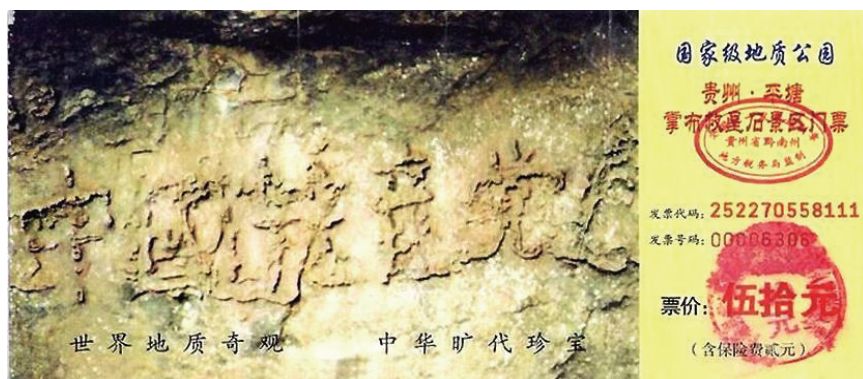 中国共産党亡
世界地质奇观 中华旷代珍宝
国家级地质公园
贵州·平塘
掌布救星石景区门票
贵州省黔南州
地方税务局监制
发票代码: 252270558111
发票号码: 00006306
票价: 伍拾元
(含保险费贰元)